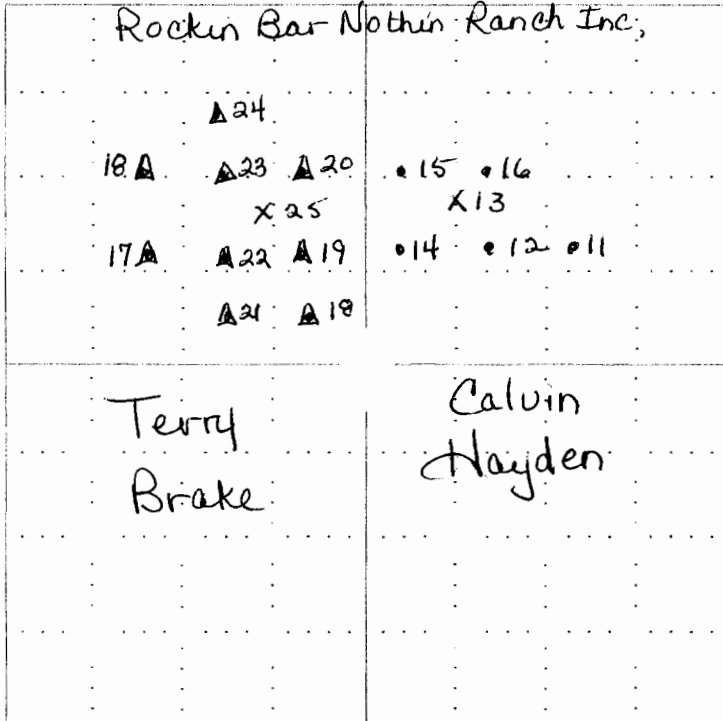 Rockin Bar Nothin Ranch Inc,
24
18 23 20 15 16
X 25 X 13
17 22 19 14 12 11
21 18
Terry
Brake
Calvin
Hayden